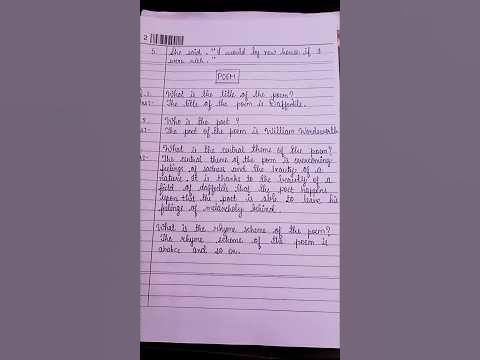 2
5. She said, "I would by new house if I
were rich."
POEM
What is the title of the poem?
The title of the poem is Daffodils.
Who is the poet ?
The poet of the poem is William Wordsworth
What is the central theme of the poem?
The central theme of the poem is overcoming
feelings of sadness and the beauty of a
nature. It is thanks to the beauty of a
field of daffodils that the poet happens
upon that the poet is able to leave his
feelings of melancholy behind.
What is the rhyme scheme of the poem?
The rhyme scheme of the poem is
ababcc and so on.